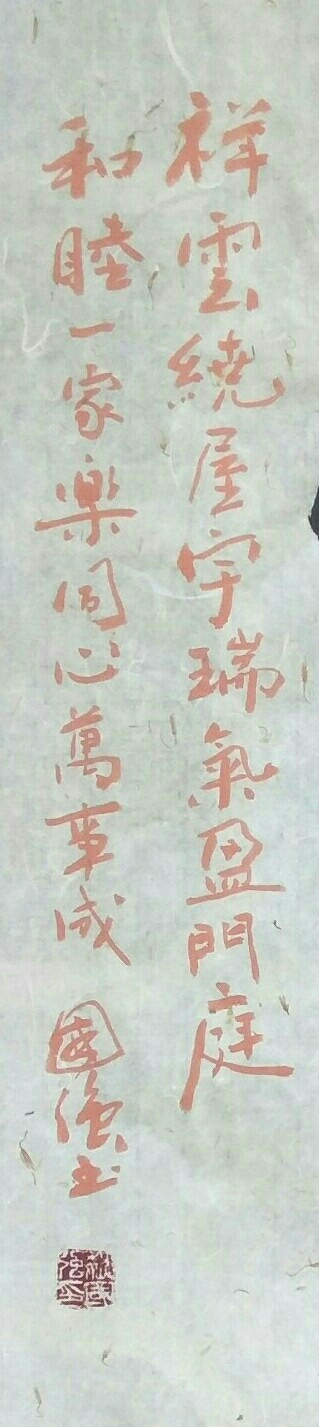 祥雲繞屋宇瑞氣盈門庭
和睦一家樂同心萬事成
國強书